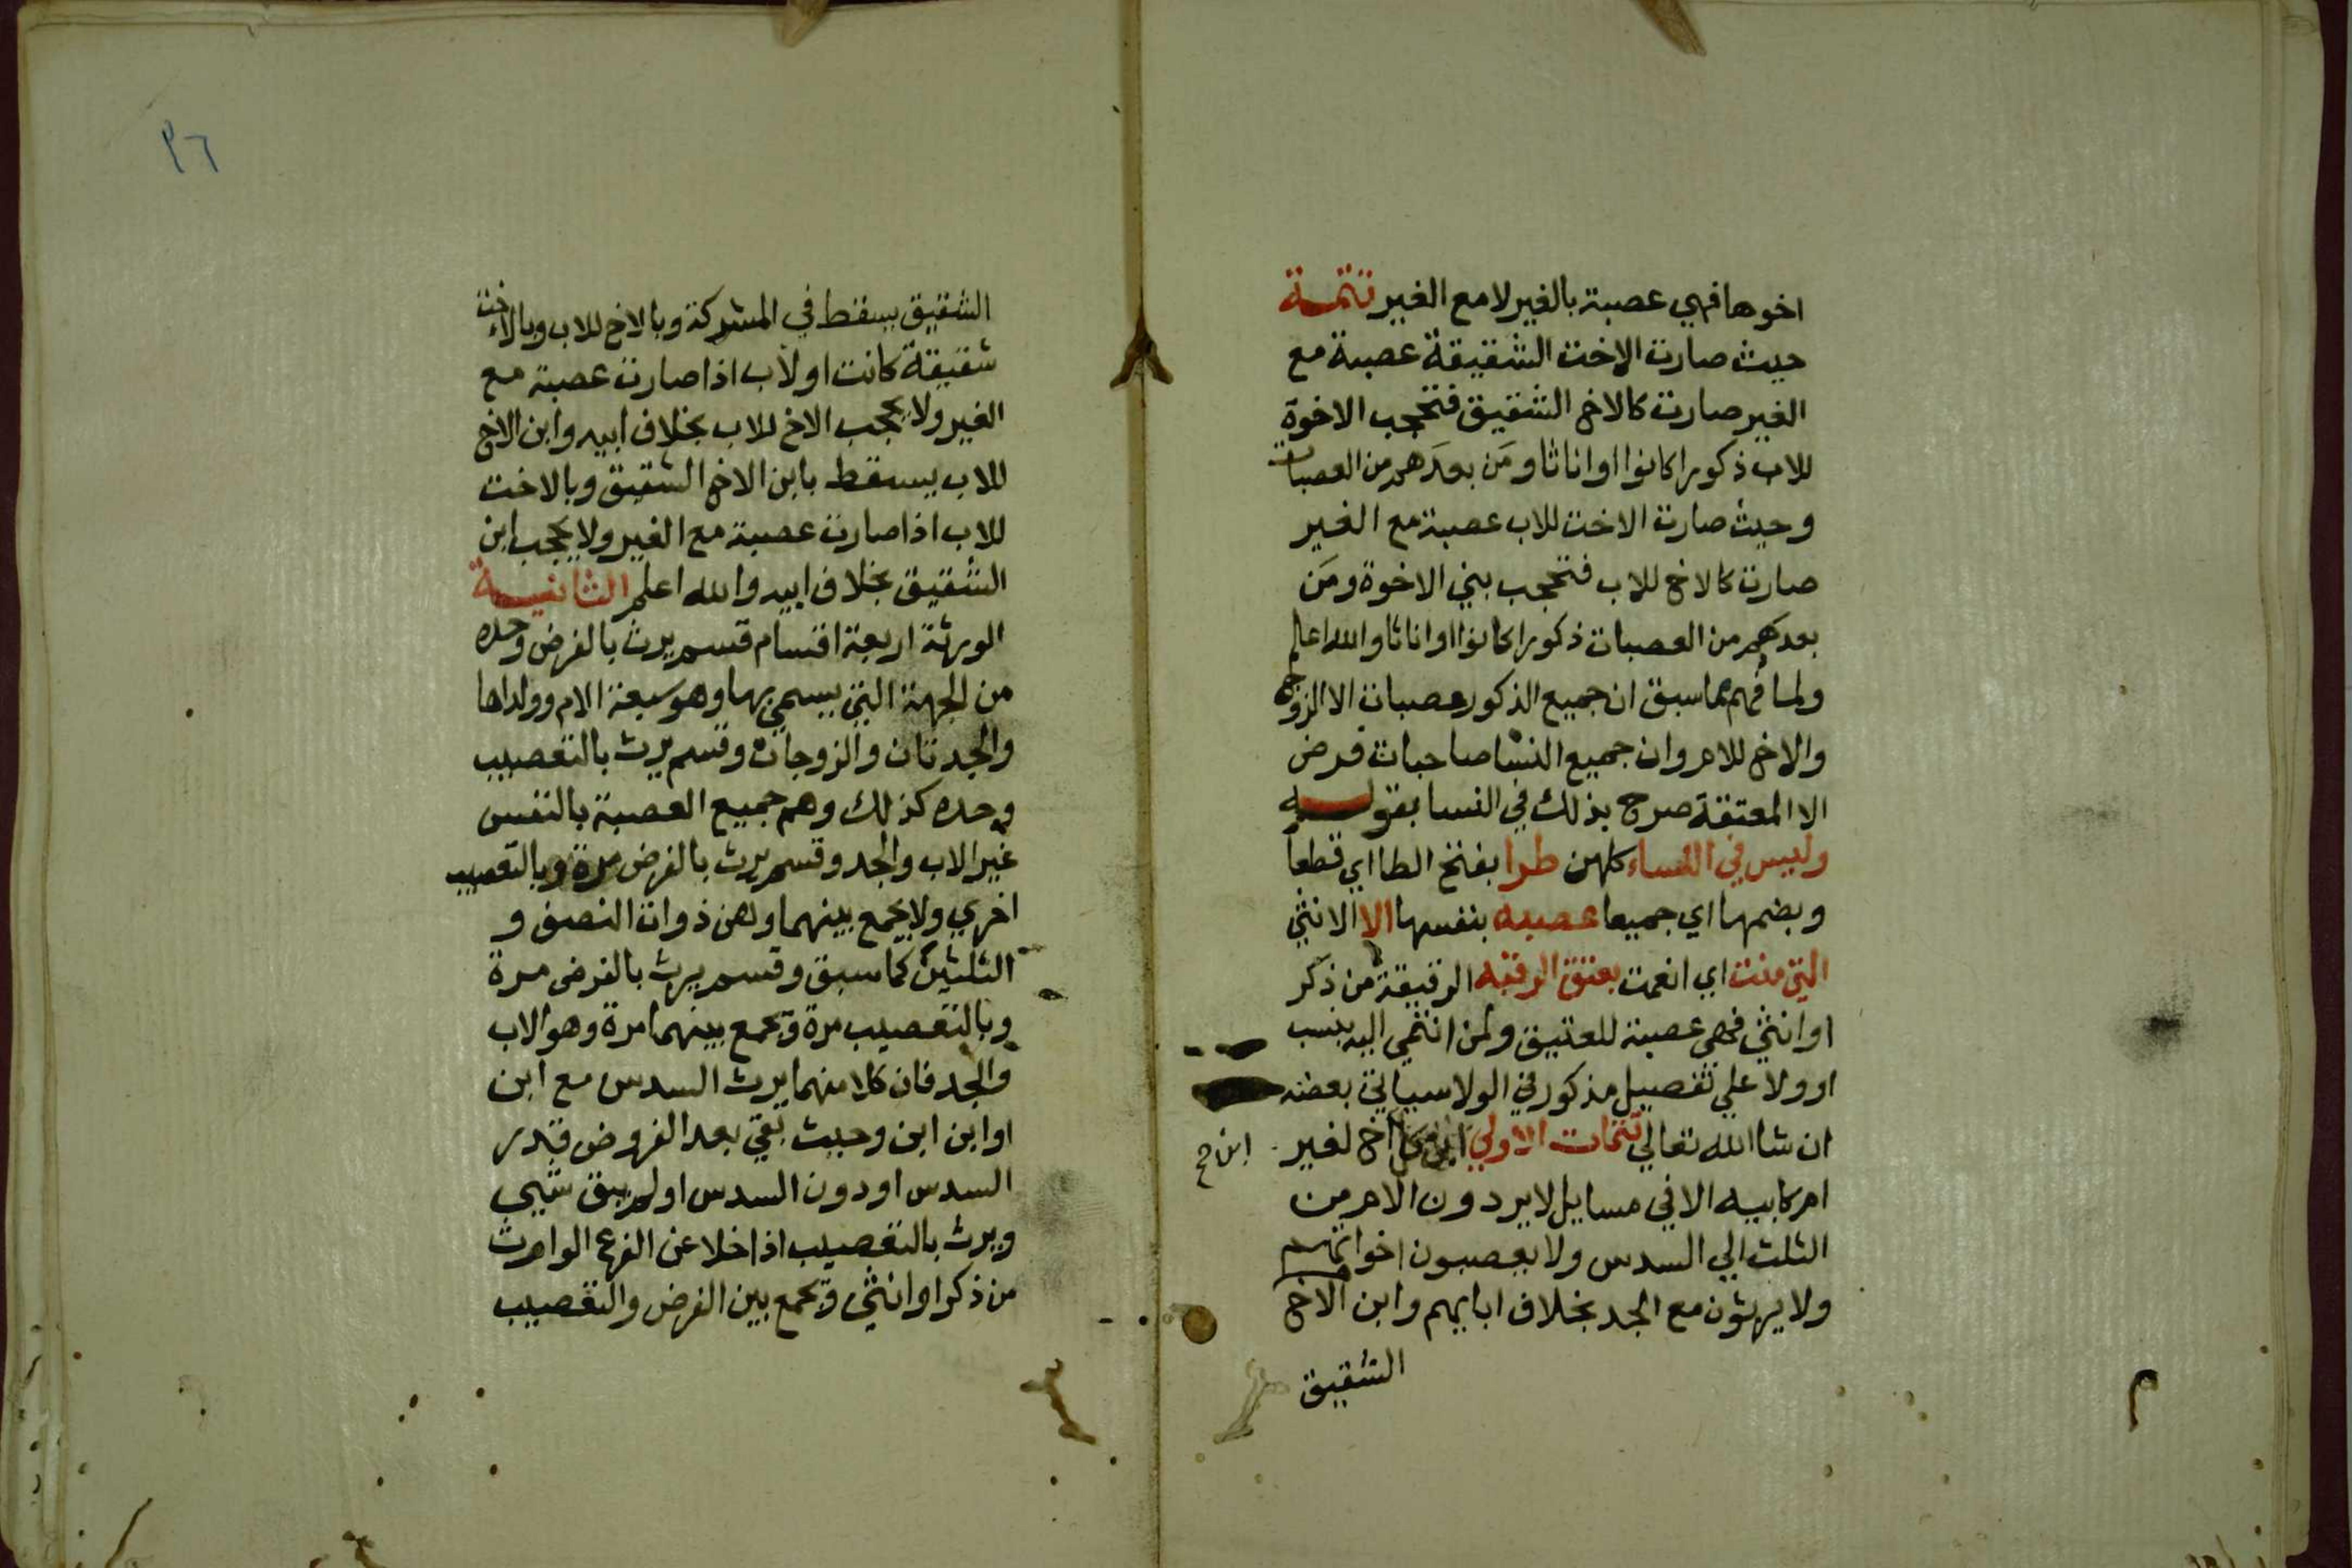 اخوها فهي عصبة بالغير لا مع الغير تتمة
حيث صارت الاخت الشقيقة عصبة مع
الغير صارت كالاخ الشقيق فتحجب الاخوة
للاب ذكورا كانوا او اناثا ومَن بعدَهم من العصبات
وحيث صارت الاخت للاب عصبة مع الغير
صارت كالاخ للاب فتحجب بني الاخوة ومَن
بعدهم من العصبات ذكورا كانوا او اناثا والله اعلم
ولما فُهم مما سبق ان جميع الذكور عصبات الا الزوج
والاخ للام وان جميع النسا صاحبات فرض
الا المعتقة صرح بذلك في النسا بقوله
وليس في النساء كلهن طرا بفتح الطا اي قطعا
وبضمها اي جميعا عصبه بنفسها الا الانثي
التي منت اي انعمت بعتق الرقبه الرقيقة من ذكر
او انثي فهي عصبة للعتيق ولمن انتمي اليه بنسب
او ولا علي تفصيل مذكور في الولا سياتي بعضه
ان شا الله تعالي تتمات الاولي ابن كل اخ لغير
ابن صح
ام كابيه الا في مسايل لا يردون الام من
الثلث الي السدس ولا يعصبون اخواتهم
ولا يرثون مع الجد بخلاف ابايهم وابن الاخ
الشقيق
م
٣٦
الشقيق يسقط في المشركة وبالاخ للاب وبالاخت
شقيقة كانت او لاب اذا صارت عصبة مع
الغير ولا يحجب الاخ للاب بخلاف ابيه وابن الاخ
للاب يسقط بابن الاخ الشقيق وبالاخت
للاب اذا صارت عصبة مع الغير ولا يحجب ابن
الشقيق بخلاف ابيه والله اعلم الثانية
الورثة اربعة اقسام قسم يرث بالفرض وحده
من الجهة التي يسمي بها وهو سبعة الام وولداها
والجدتان والزوجان وقسم يرث بالتعصيب
وحده كذلك وهم جميع العصبة بالنفس
غير الاب والجد وقسم يرث بالفرض مرة وبالتعصيب
اخري ولا يجمع بينهما وهن ذوات النصف و
الثلثين كما سبق وقسم يرث بالفرض مرة
وبالتعصيب مرة ويجمع بينهما مرة وهو الاب
والجد فان كلا منهما يرث السدس مع ابن
او ابن ابن وحيث بقي بعد الفروض قدر
السدس او دون السدس او لم يبق شيي
ويرث بالتعصيب اذا خلا عن الفرع الوارث
من ذكر او انثي ويجمع بين الفرض والتعصيب